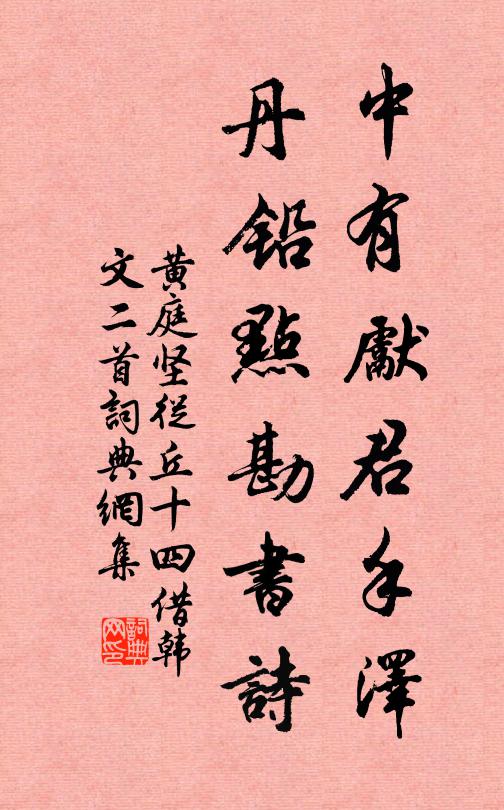 中有獻君手澤
丹鉛點勘書詩
黄庭坚從丘十四借韩
文二首詞典網集
詞典
网印